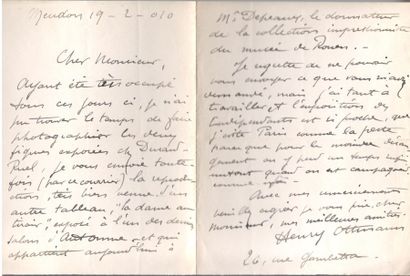 Meudon 19-2-010
Cher Monsieur,
Ayant été très occupé
tous ces jours ci, je n'ai
pu trouver le temps de faire
photographier les deux
figures exposées chez Durand-
Ruel, je vous envoie toute-
fois (par ce courrier) la reproduc-
tion, très bien venue, d'un
autre tableau, "la dame au
miroir", exposé à l'un des derniers
salons d'Automne, et qui
appartient aujourd'hui à
Mr Depeaux, le donnateur
de la collection impressionniste
du musée de Rouen. -
Je regrette de ne pouvoir
vous envoyer ce que vous m'avez
demandé, mais j'ai tant à
travailler et l'exposition des
Indépendants est si proche, que
j'évite Paris comme la peste
parce que pour le moindre déran-
gement on y perd un temps infini
surtout quand on est campagnard
comme
Avec mes remerciements
veuillez agréer je vous prie, cher
Monsieur, mes meilleures amitiés.
Henry Ottmann
26, rue Gambetta